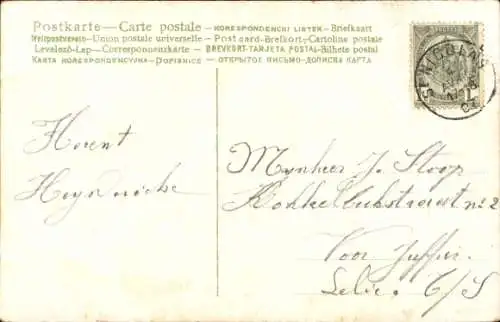 Postkarte — Carte postale — KORESPONDENCNI LISTEK — Briefkaart
Weltpostverein — Union postale universelle — Post card — Brefkort — Cartoline postale
Levelező-Lap — Correspondenzkarte — BREVKORT — TARJETA POSTAL — Bilhete postal
KARTA KORESPONDENCYJNA — DOPISNICE — ОТКРЫТОЕ ПИСЬМО — ДОПИСНА КАРТА
ST NICOLAAS
Mynheer J. Stoop
Kokkelbeekstraat no 2
Voor Juffr.
Florent